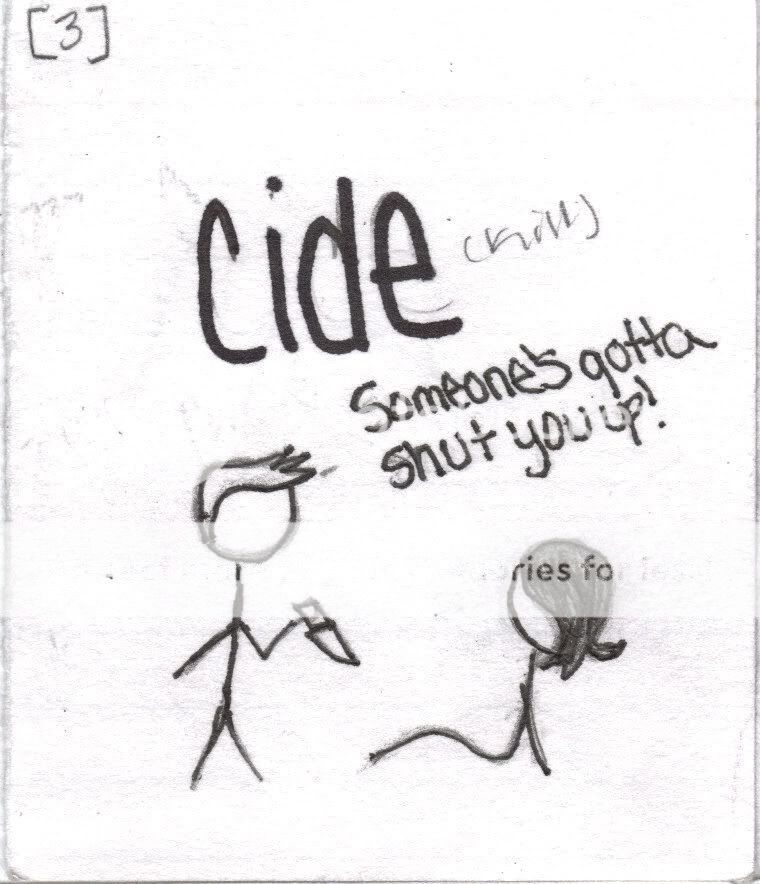 [3]
cide (kill)
Someone's gotta
shut you up!
ries fo